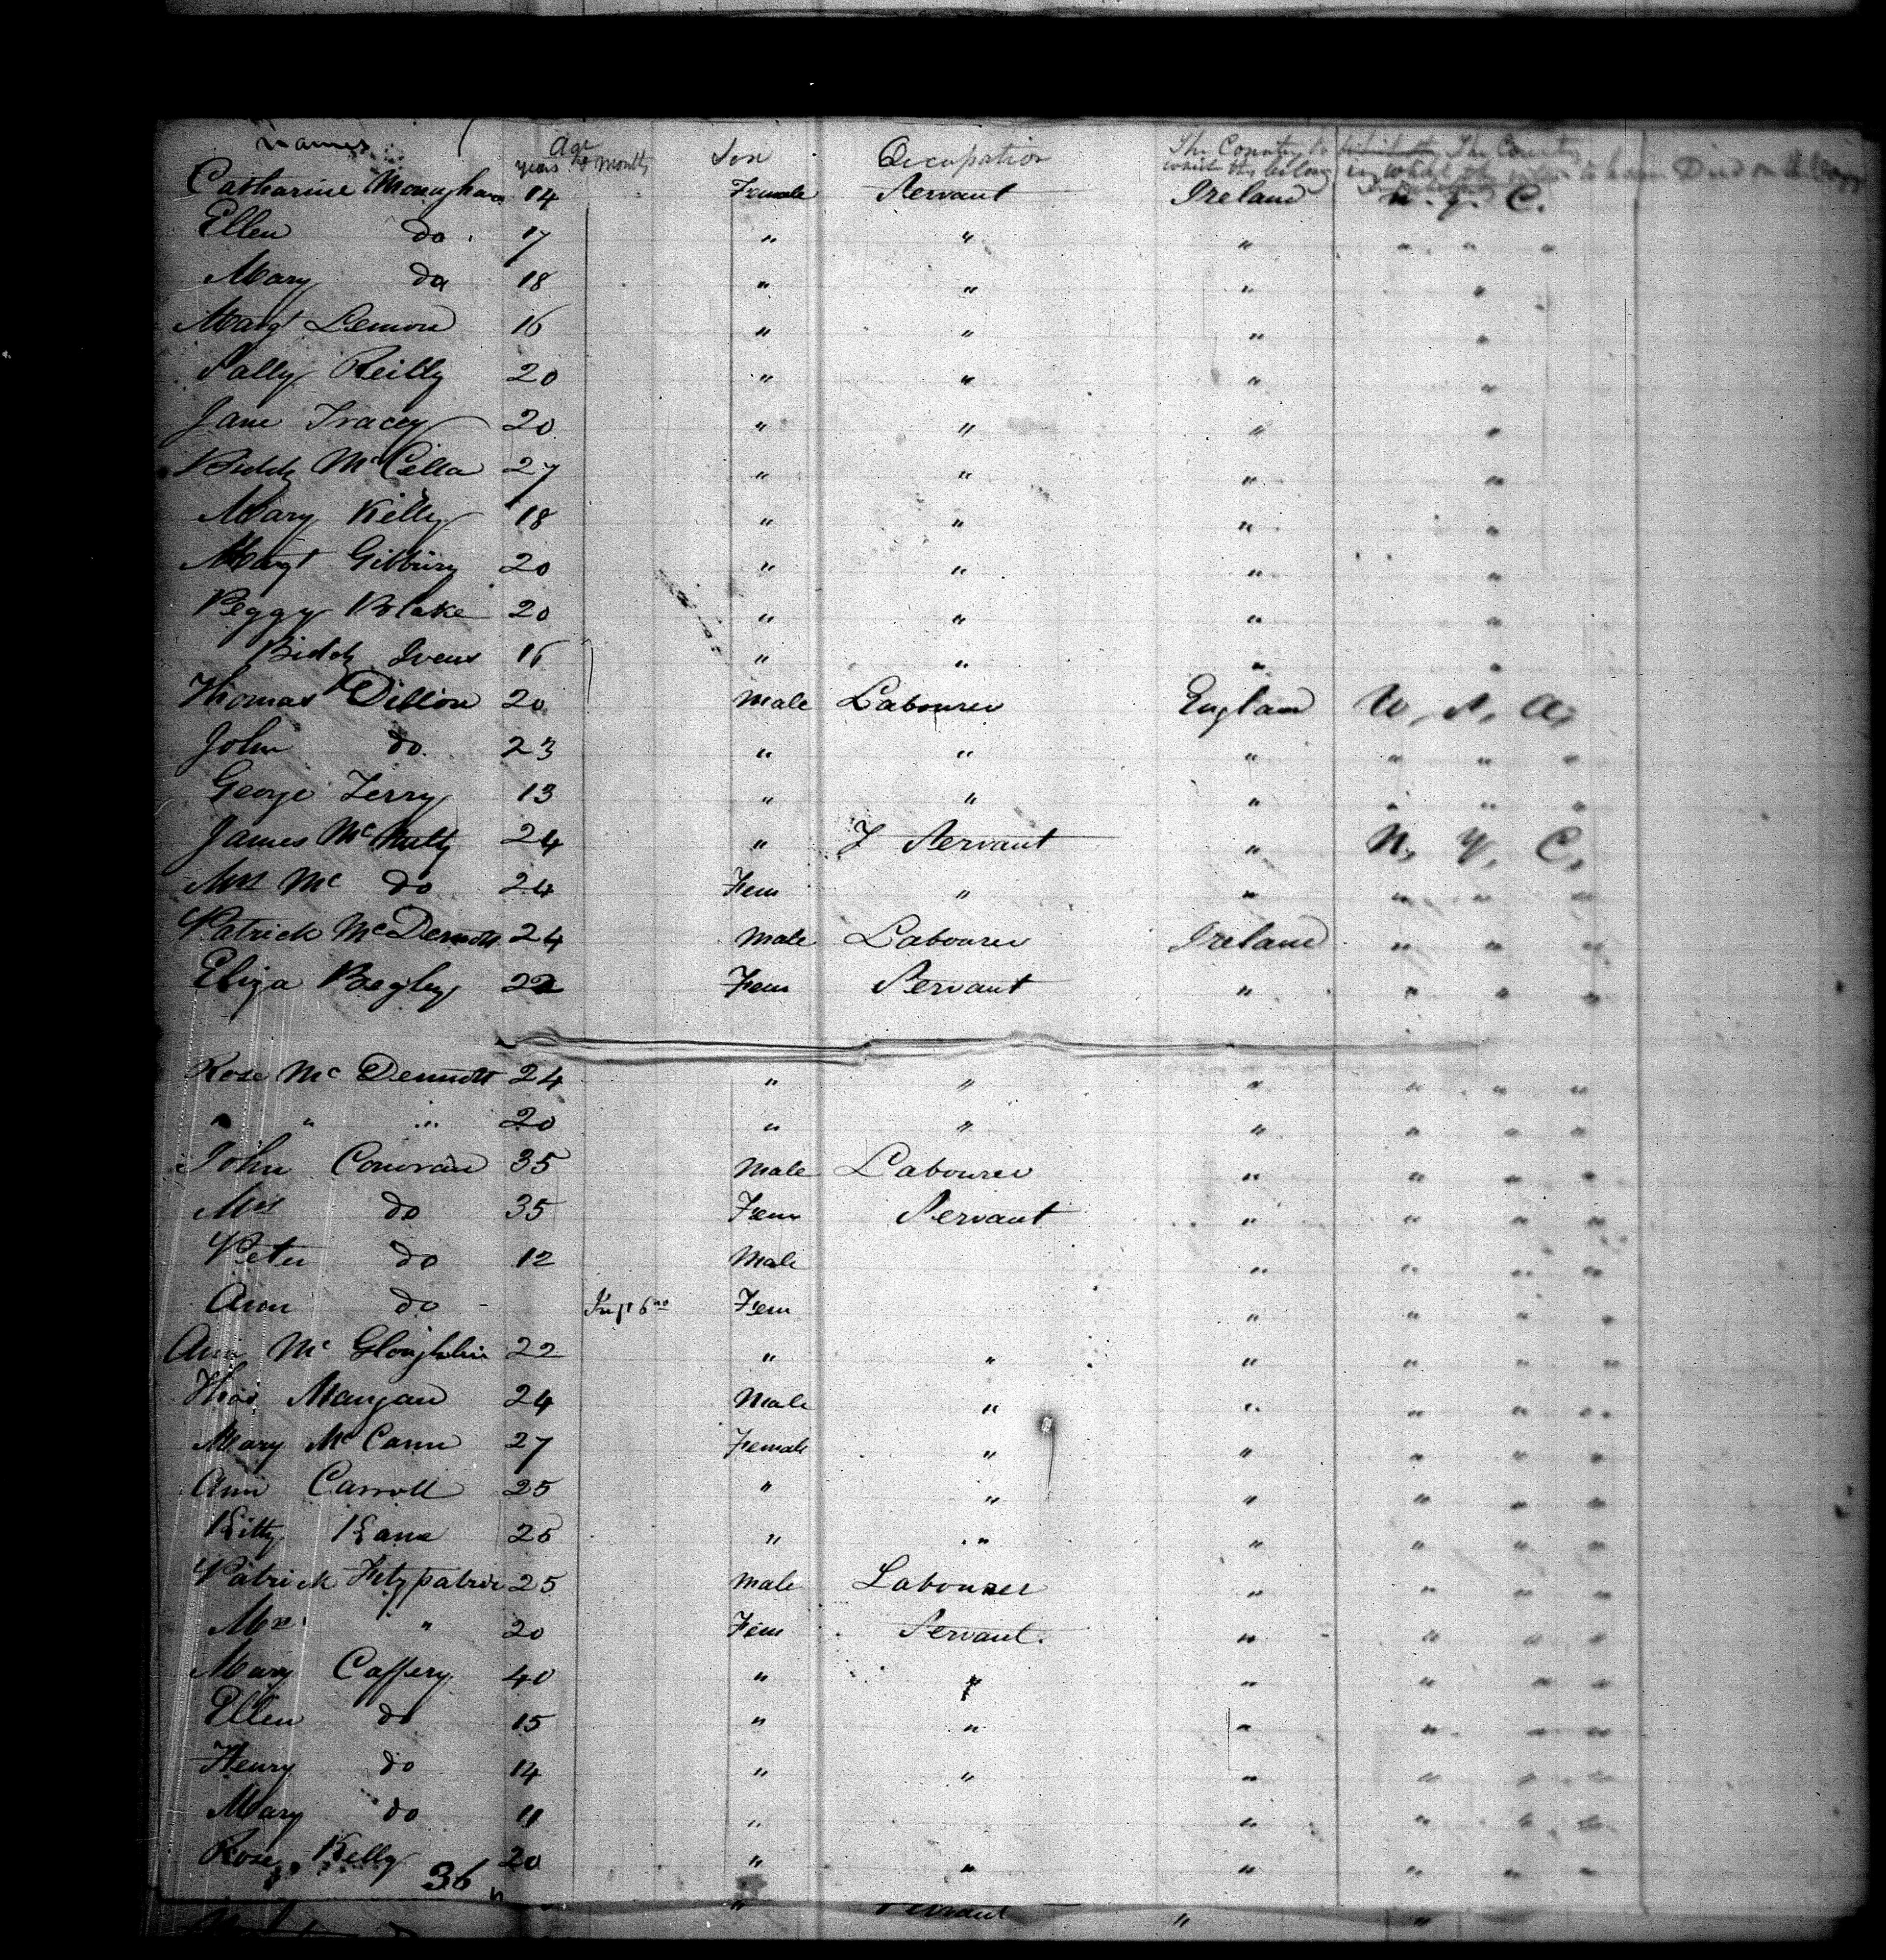 Names Age Sex Occupation The Country to The Country
years months which they belong in which they to Died on the
Catharine Monaghan 14 Female Servant Ireland N. Y. C.
Ellen do 17 " " " " " "
Mary do 18 " " " "
Margt Lemon 16 " " " "
Sally Reilly 20 " " " "
Jane Tracey 20 " " " "
Biddy McCella 27 " " " "
Mary Kelly 18 " " " "
Margt Gibbury 20 " " " "
Peggy Blake 20 " " " "
Biddy 16 " " " "
Thomas Dillon 20 Male Labourer England U. S. A.
John do 23 " " " " " "
George Terry 13 " " " " " "
James McNulty 24 " F Servant " N. Y. C.
Mrs Mc do 24 Fem " " " " "
Patrick McDermott 24 Male Labourer Ireland " " "
Eliza Begley 22 Fem Servant " " " "
Rose Mc Dermott 24 " " " " " "
" " " 20 " " " " " "
John Conoran 35 Male Labourer " " " "
Mrs do 35 Fem Servant " " " "
Peter do 12 Male " " " "
Ann do Inft 6 mo Fem " " " "
Ann Mc Gloughlin 22 " " " " " "
Thos Mangan 24 Male " " " " "
Mary McCann 27 Female " " " " "
Ann Carroll 25 " " " " " "
Kitty Kane 25 " " " " " "
Patrick Fitzpatric 25 Male Labourer " " " "
Mrs " 20 Fem Servant. " " " "
Mary Caffery 40 " " " " " "
Ellen do 15 " " " " " "
Henry do 14 " " " " " "
Mary do 11 " " " " "
Rose Kelly 20 " " " " " "
36
" Servant " "